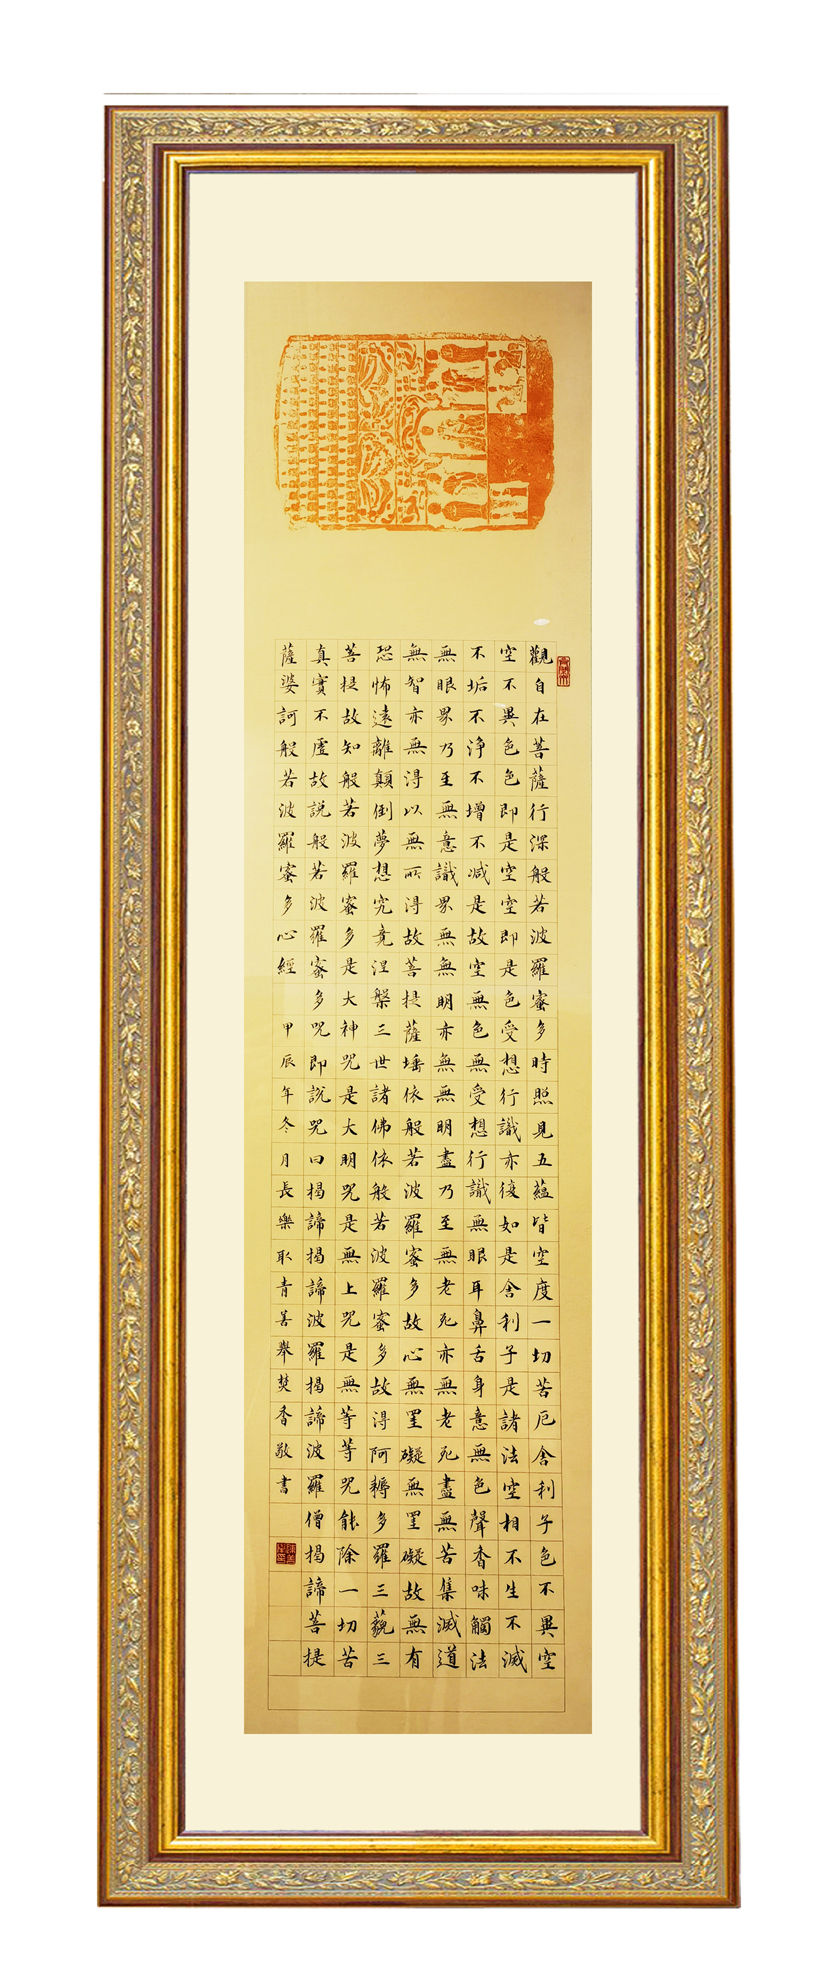 觀自在菩薩行深般若波羅蜜多時照見五蘊皆空度一切苦厄舍利子色不異空
空不異色色即是空空即是色受想行識亦復如是舍利子是諸法空相不生不滅
不垢不淨不增不减是故空無色無受想行識無眼耳鼻舌身意無色聲香味觸法
無眼界乃至無意識界無無明亦無無明盡乃至無老死亦無老死盡無苦集滅道
無智亦無得以無所得故菩提薩埵依般若波羅蜜多故心無罣礙無罣礙故無有
恐怖遠離顛倒夢想究竟涅槃三世諸佛依般若波羅蜜多故得阿耨多羅三藐三
菩提故知般若波羅蜜多是大神咒是大明咒是無上咒是無等等咒能除一切苦
真實不虛故説般若波羅蜜多咒即説咒曰揭諦揭諦波羅揭諦波羅僧揭諦菩提
薩婆訶般若波羅蜜多心經 甲辰年冬月長樂青善舉焚香敬書